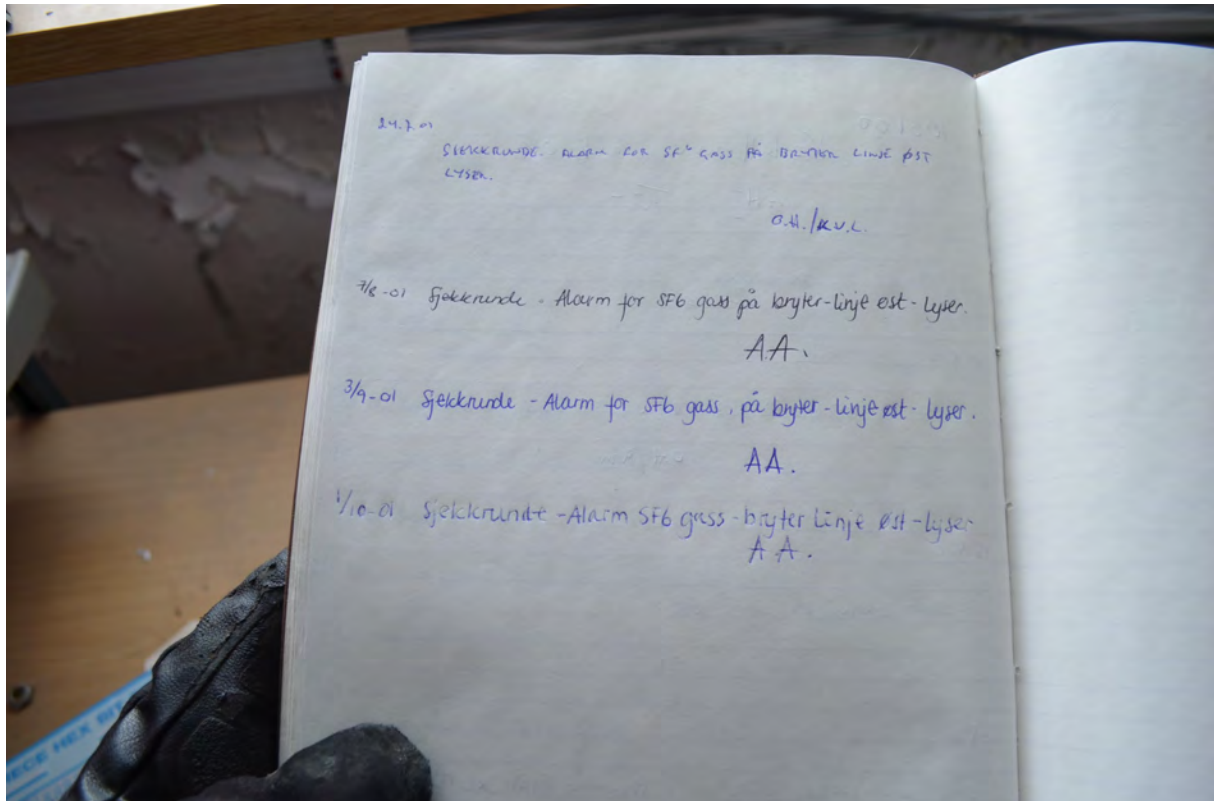 24.7.01
SJEKKRUNDE. ALARM FOR SF6 GASS PÅ BRYTER LINJE ØST
LYSER.
O.H./K.V.L.
7/8-01 Sjekkrunde - Alarm for SF6 gass på bryter-linje øst - lyser.
AA.
3/9-01 Sjekkrunde - Alarm for SF6 gass, på bryter-linje øst - lyser.
AA.
1/10-01 Sjekkrunde - Alarm SF6 gass - bryter Linje øst - lyser
AA.
ECE HEX BIT